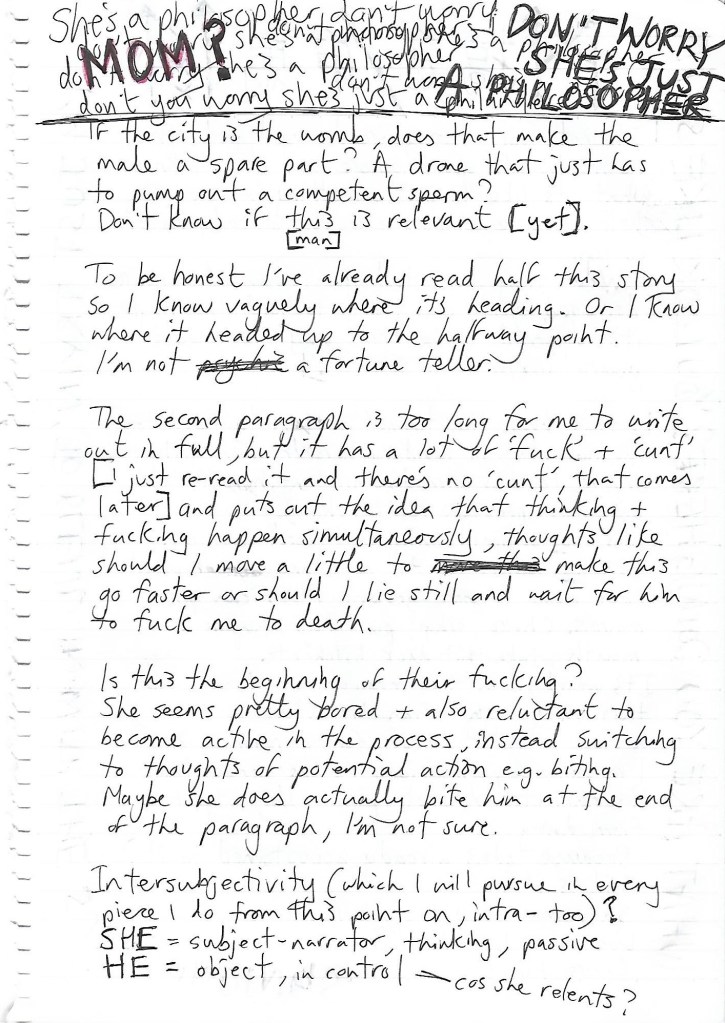 She's a philosopher don't worry
MOM?
she's a philosopher
don't you worry she's just a
DON'T WORRY
SHE'S JUST
A PHILOSOPHER
If the city is the womb, does that make the
male a spare part? A drone that just has
to pump out a competent sperm?
Don't know if this is relevant [yet].
[man]
To be honest I've already read half this story
so I know vaguely where its heading. Or I know
where it headed up to the halfway point.
I'm not psychic a fortune teller.
The second paragraph is too long for me to write
out in full, but it has a lot of 'fuck' + 'cunt'
[I just re-read it and there's no 'cunt', that comes
later] and puts out the idea that thinking +
fucking happen simultaneously, thoughts like
should I move a little to make this
go faster or should I lie still and wait for him
to fuck me to death.
Is this the beginning of their fucking?
She seems pretty bored + also reluctant to
become active in the process, instead switching
to thoughts of potential action e.g. biting.
Maybe she does actually bite him at the end
of the paragraph, I'm not sure.
Intersubjectivity (which I will pursue in every
piece I do from this point on, intra-too)?
SHE = subject-narrator, thinking, passive
HE = object, in control — cos she relents?